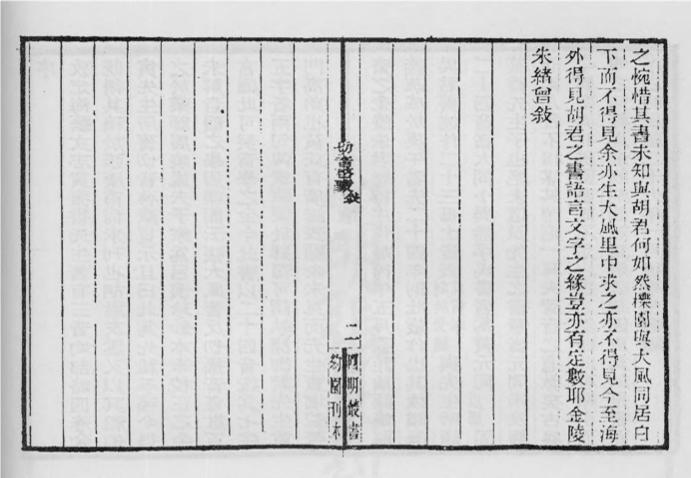 之惋惜其書未知與胡君何如然櫟園與大風同居白
下而不得見余亦生大風里中求之亦不得見今至海
外得見胡君之書語言文字之緣豈亦有定數耶金陵
朱緒曾敘
切音啓蒙敘
二
四明叢書
約園刊本